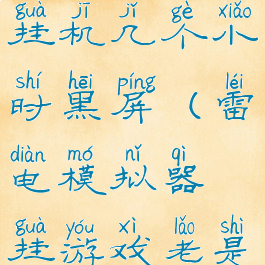 guà jī jǐ gè xiǎo
挂机几个小
shí hēi píng léi
时黑屏（雷
diàn mó nǐ qì
电模拟器
guà yóu xì lǎo shì
挂游戏老是